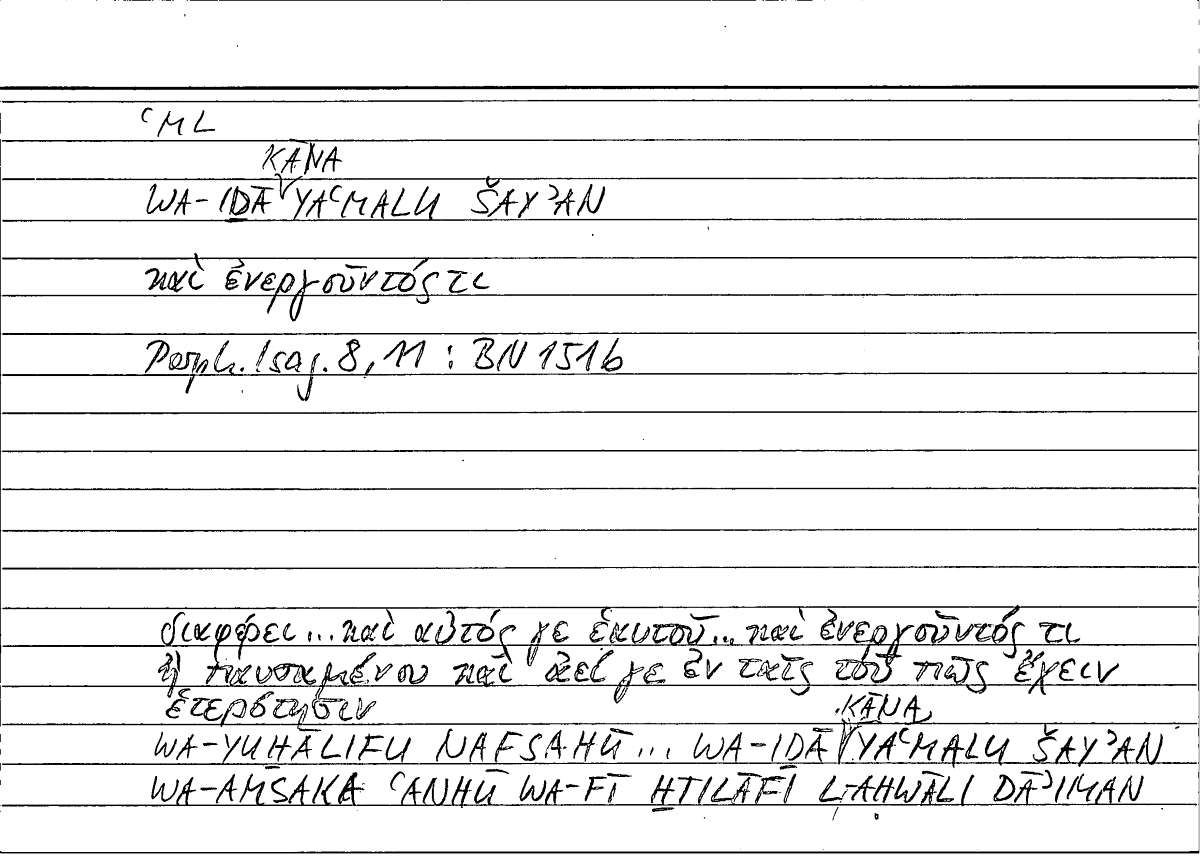 ʿML
KĀNA
WA-IḎĀ YAʿMALU ŠAYʾAN
καὶ ἐνεργοῦντός τι
Porph. Isag. 8, 11 : BN 151b
διαφέρει ... καὶ αὐτός γε ἑαυτοῦ ... καὶ ἐνεργοῦντός τι
ἢ παυσαμένου καὶ ἀεί γε ἐν ταῖς τοῦ πῶς ἔχειν
ἑτερότησιν
KĀNA
WA-YUḪĀLIFU NAFSAHŪ ... WA-IḎĀ YAʿMALU ŠAYʾAN
WA-AMSAKA ʿANHŪ WA-FĪ ḪTILĀFI L-AḤWĀLI DĀʾIMAN